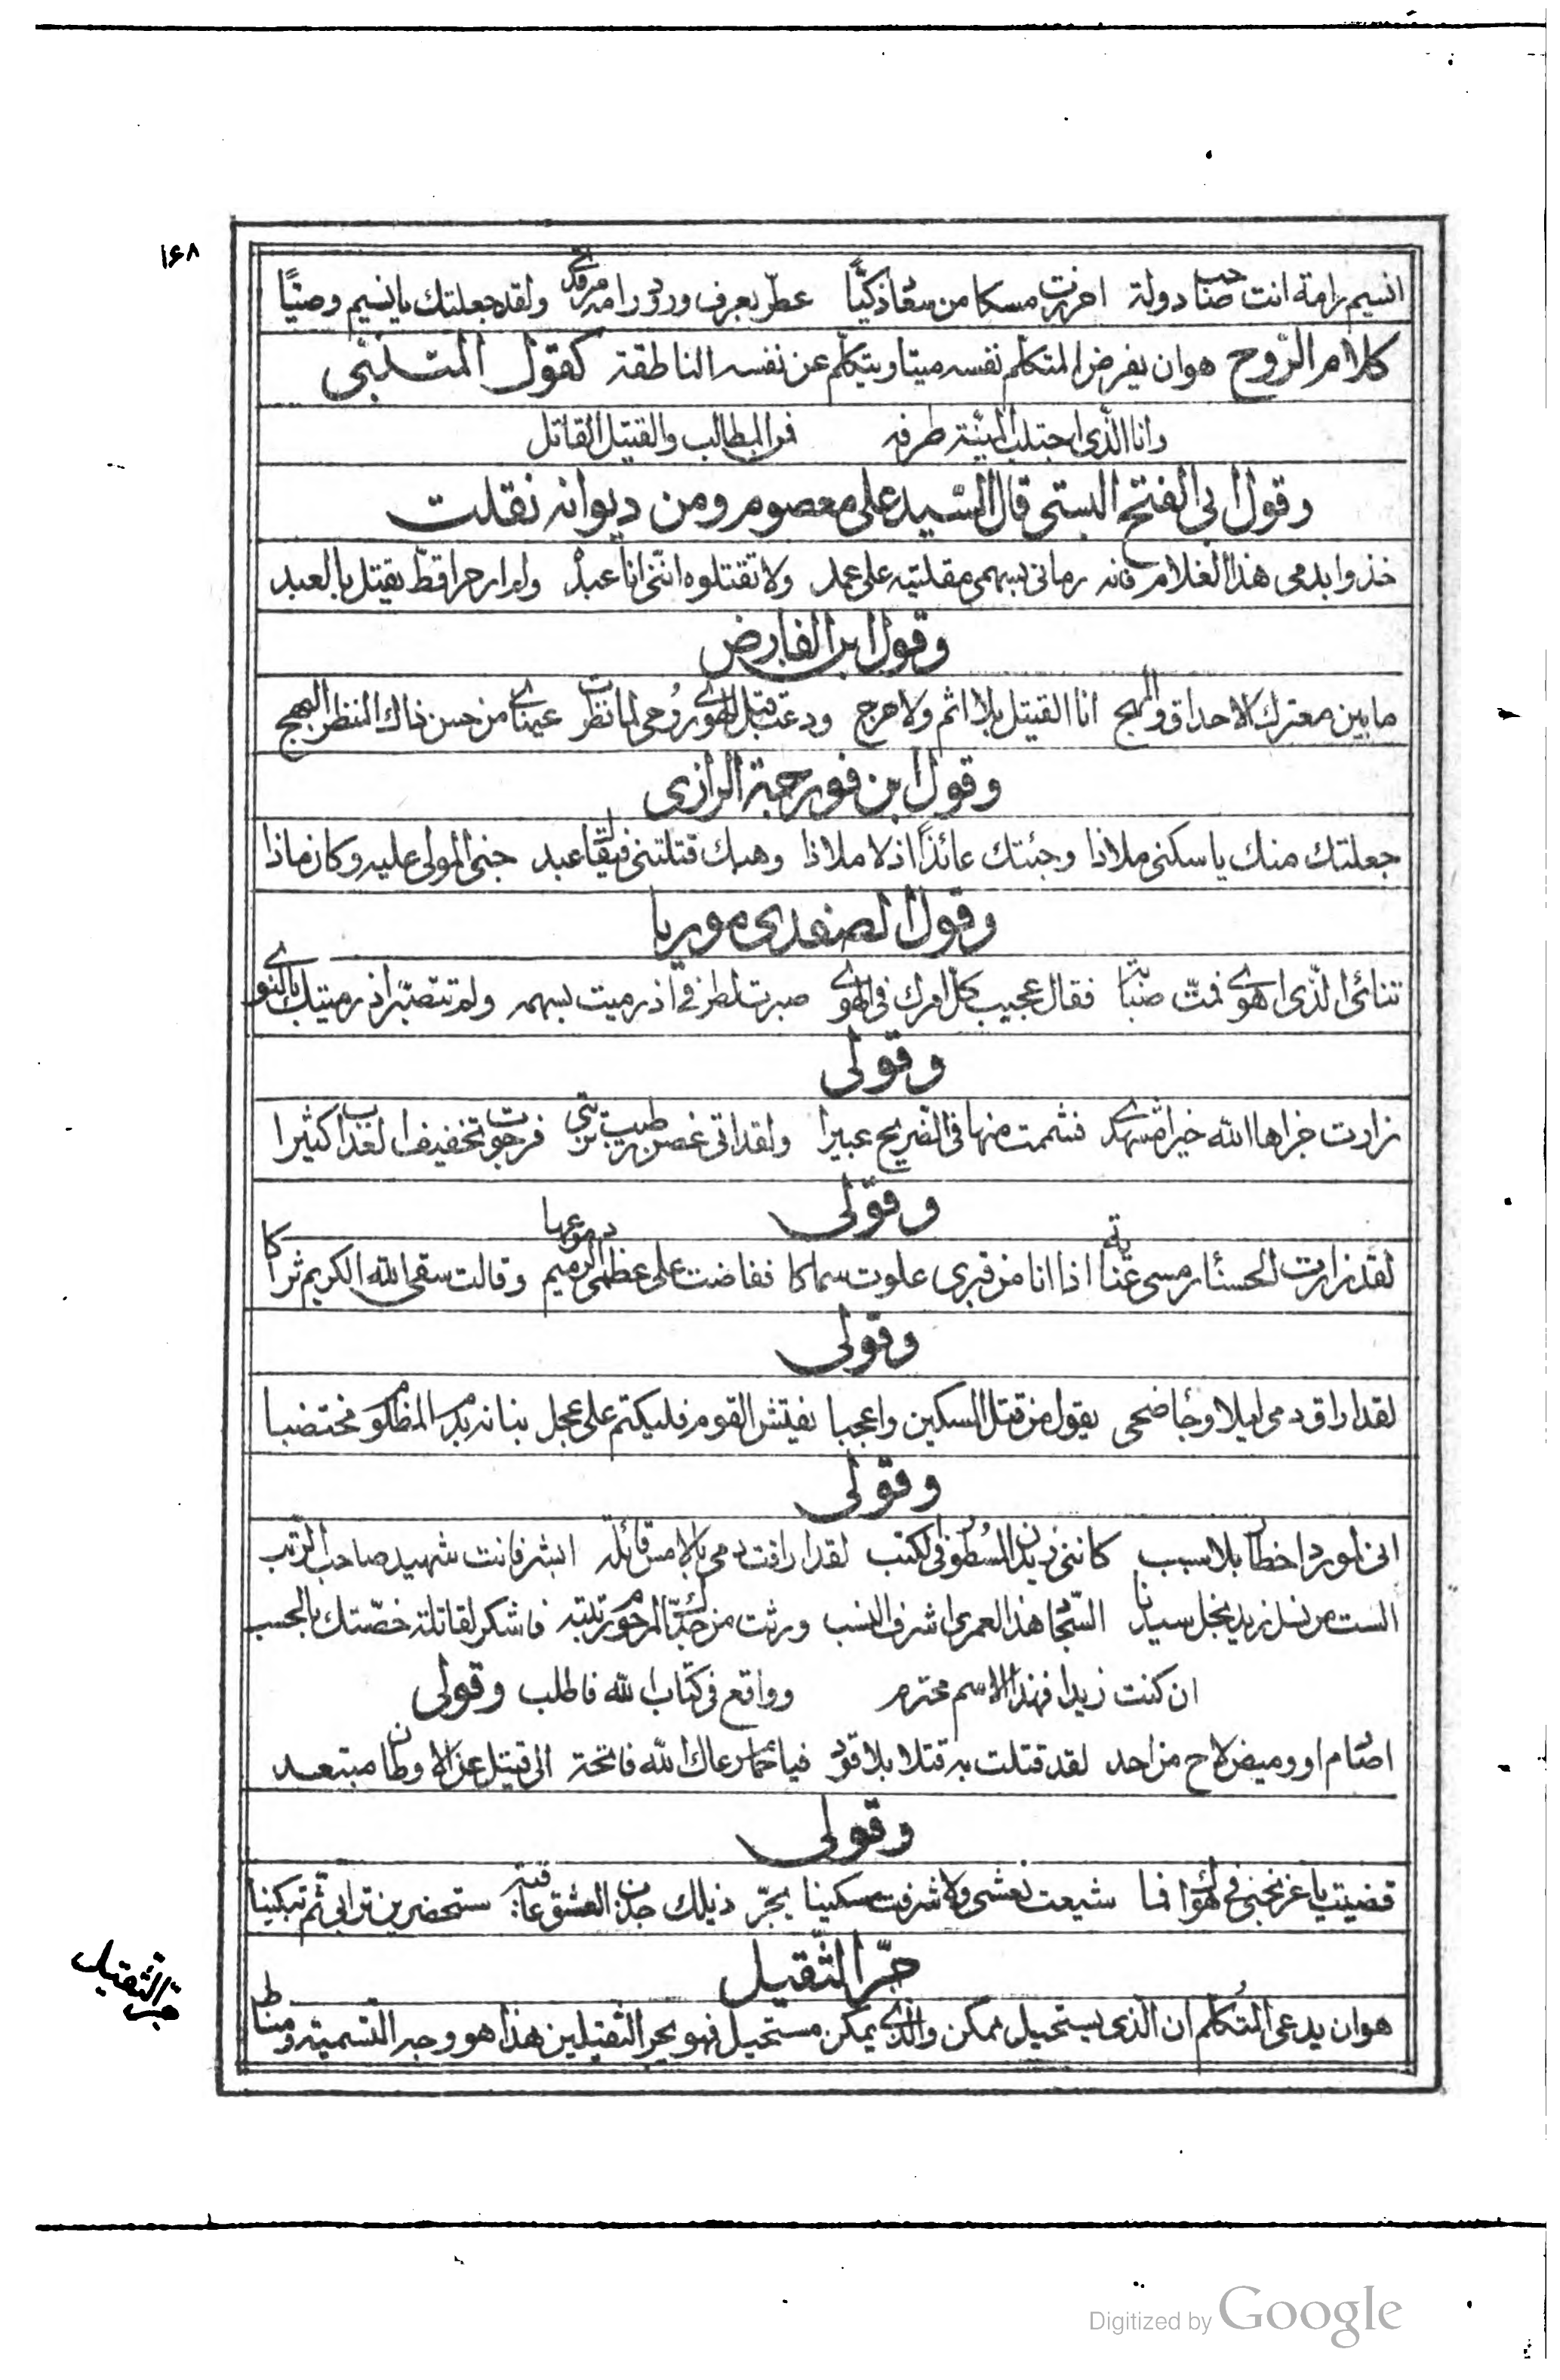 ۱۶۸
انسيم رامة انت صاحب دولة احرزت مسكا من سعاد ذكيّا عطّر بعرف ورود رامة مرقدى ولقد جعلتك يا نسيم وصيّا
كلام الرّوح هو ان يفرض المتكلم نفسه ميتا ويتكلّم عن نفسه الناطقة كقول المتنبّى
وانا الّذى اجتلب المنيّة طرفه فمن المطالب والقتيل القاتل
وقول ابى الفتح البستى قال السّيد على معصوم ومن ديوانه نقلت
خذوا بدمى هذا الغلام فانه رمانى بسهمى مقلتيه على عمد ولا تقتلوه انّنى انا عبدُه ولم ار حرا قطّ يقتل بالعبد
وقول ابن الفارض
ما بين معترك الاحداق والمهج انا القتيل بلا اثم ولا حرج ودعت قبل الهوى روحى لما نظرت عيناى من حسن ذاك المنظر البهج
وقول ابن فورجة الرازى
جعلتك منك يا سكنى ملاذا وجئتك عائذًا اذ لا ملاذا وهبك قتلتنى فيقال عبد جنى المولى عليه وكان ماذا
وقول الصفدى موريا
تنائى الّذى اهوى فمتّ صبابة فقال عجيب كل امرك فى الهوى صبرت لطرفى اذ رميت بسهمه ولم تتصبّر اذ رميتك بالنوى
وقولى
زارت جزاها الله خيرا مشهدى فشممت منها فى الضريح عبيرا ولقد اتى غصن رطيب تربتى فرجوت تخفيف العذاب كثيرا
وقولى
لقد زارت الحسنا رمسى عناية اذا انا من قبرى علوت سماكا ففاضت على عظمى الرميم دموعها وقالت سقى الله الكريم ثراكا
وقولى
لقد اراق دمى ليلا وجا ضحى يقول من قتل المسكين واعجبا نفتش القوم فليكتم على عجل بنانه بدم المظلوم مختضبا
وقولى
انى لمورد اخطا بلا سبب كاننى زيدن المسطور فى الكتب لقد اراقت دمى بالامس قائلة ابشر فانت شهيد صاحب الرتب
الست من نسل زيد نجل سيدنا السجّاد هذا لعمرى اشرف النسب ورثت من جدّك المرحوم رتبته فاشكر لقاتلة خصّتك بالحسب
ان كنت زيدا فهذا الاسم محترم وواقع فى كتاب الله فاطلب وقولى
اصارم او وميض لاح من احد لقد قتلت به قتلا بلا قود فيا حمام رعاك الله فاتحة الى قتيل عن الاوطان مبتعد
وقولى
قضيت يا عز نحبى فى هواك فما شيعت نعشى ولا شرفت مسكينا بجرّ ذيلك جدن العشق عاقبة ستحضرين ترابى ثم تبكينا
جرّ الثّقيل
هو ان يدعى المتكلم ان الذى يستحيل ممكن والذى يمكن مستحيل فهو يجر الثقيلين هذا هو وجه التسمية ومناط
جر الثقيل
Digitized by Google